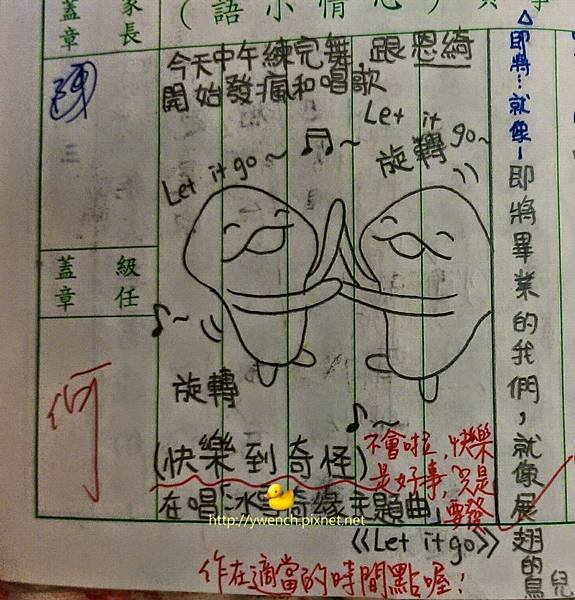 (語小情心)
家長
蓋章
陳
級任
蓋章
何
△即將…就像…
即將畢業的我們，就像展翅的鳥兒
今天中午練完舞 跟恩綺
開始發瘋和唱歌
Let it go~
Let it go~
旋轉
旋轉
(快樂到奇怪)
在唱「冰雪奇緣主題曲」
《Let it go》
不會啦，快樂
是好事，只是
要發
作在適當的時間點喔！
http://ywench.pixnet.net